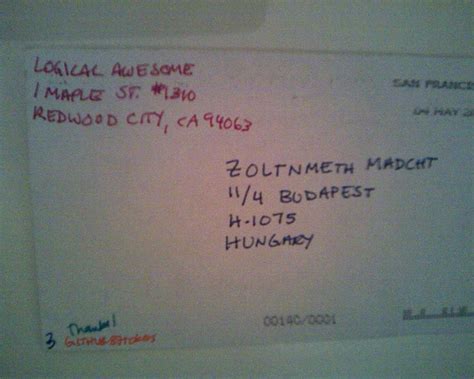 LOGICAL AWESOME
1 MAPLE ST. #1310
REDWOOD CITY, CA 94063
SAN FRANCIS
04 MAY 2
ZOLTNMETH MADCHT
11/4 BUDAPEST
H-1075
HUNGARY
00140/0001
3 Thanks!
GITHUB